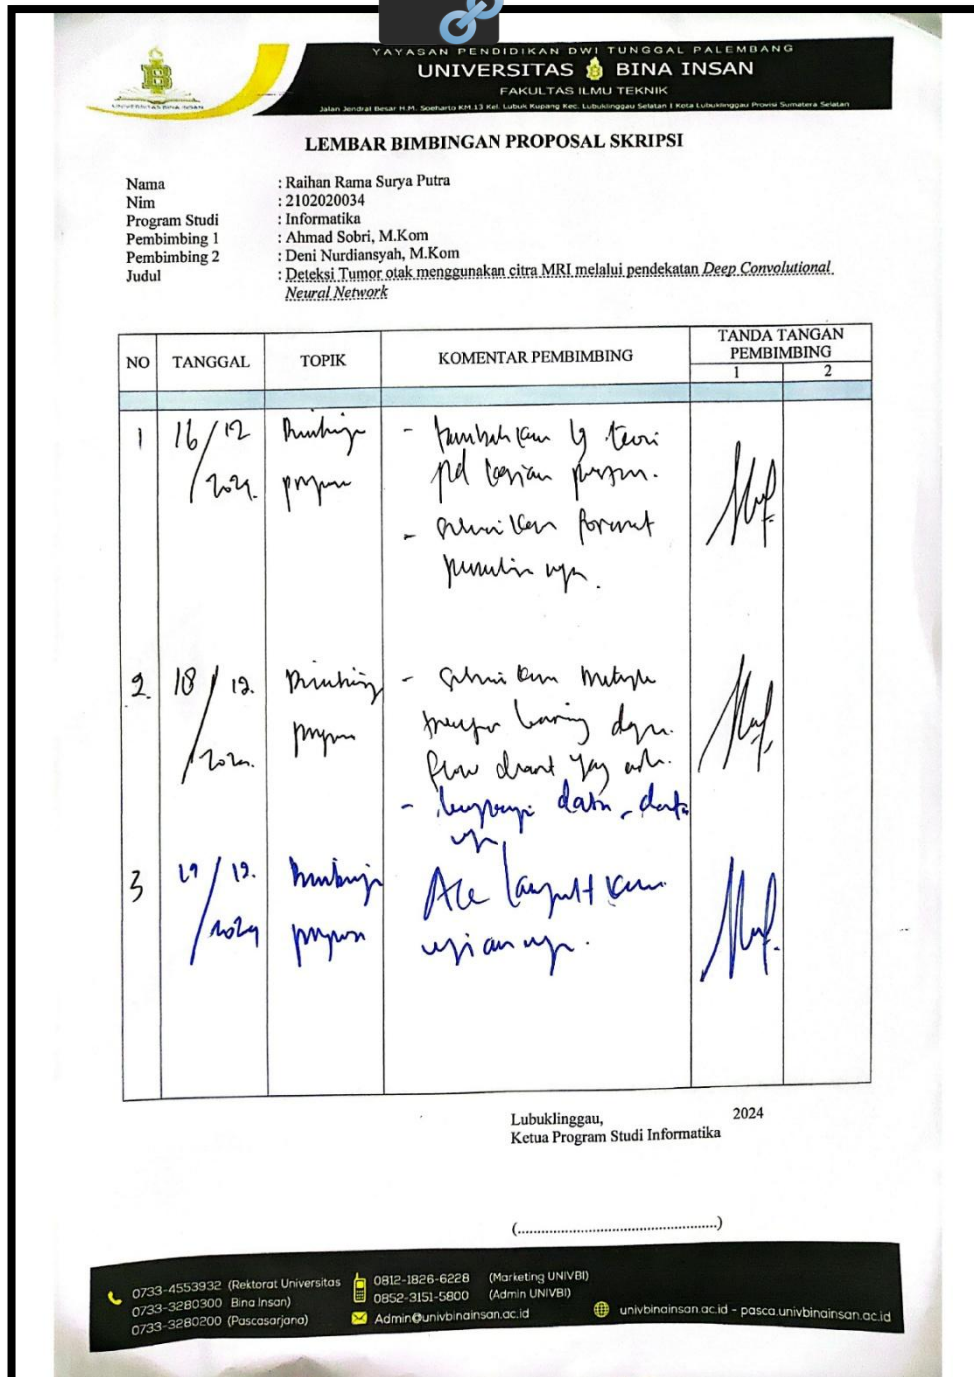 YAYASAN PENDIDIKAN DWI TUNGGAL PALEMBANG
UNIVERSITAS BINA INSAN
FAKULTAS ILMU TEKNIK
Jalan Jendral Besar H.M. Soeharto KM.13 Kel. Lubuk Kupang Kec. Lubuklinggau Selatan I Kota Lubuklinggau Provinsi Sumatera Selatan
UNIVERSITAS BINA INSAN
LEMBAR BIMBINGAN PROPOSAL SKRIPSI
Nama : Raihan Rama Surya Putra
Nim : 2102020034
Program Studi : Informatika
Pembimbing 1 : Ahmad Sobri, M.Kom
Pembimbing 2 : Deni Nurdiansyah, M.Kom
Judul : Deteksi Tumor otak menggunakan citra MRI melalui pendekatan Deep Convolutional
Neural Network
NO TANGGAL TOPIK KOMENTAR PEMBIMBING TANDA TANGAN PEMBIMBING
1 2
1 16/12 Bimbingan - tambahkan lg teori
/2024. pd bagian
- sesuaikan format
penulisannya.
2. 18/12. Bimbingan - sesuaikan
/2024. learning dgn.
flow chart yang ada.
- lengkapi data-data
nya
3 19/12. Bimbingan Acc lanjutkan
/2024 ujiannya.
Lubuklinggau, 2024
Ketua Program Studi Informatika
(..................................................)
0733-4553932 (Rektorat Universitas
0733-3280300 Bina Insan)
0733-3280200 (Pascasarjana)
0812-1826-6228 (Marketing UNIVBI)
0852-3151-5800 (Admin UNIVBI)
Admin@univbinainsan.ac.id
univbinainsan.ac.id - pasca.univbinainsan.ac.id